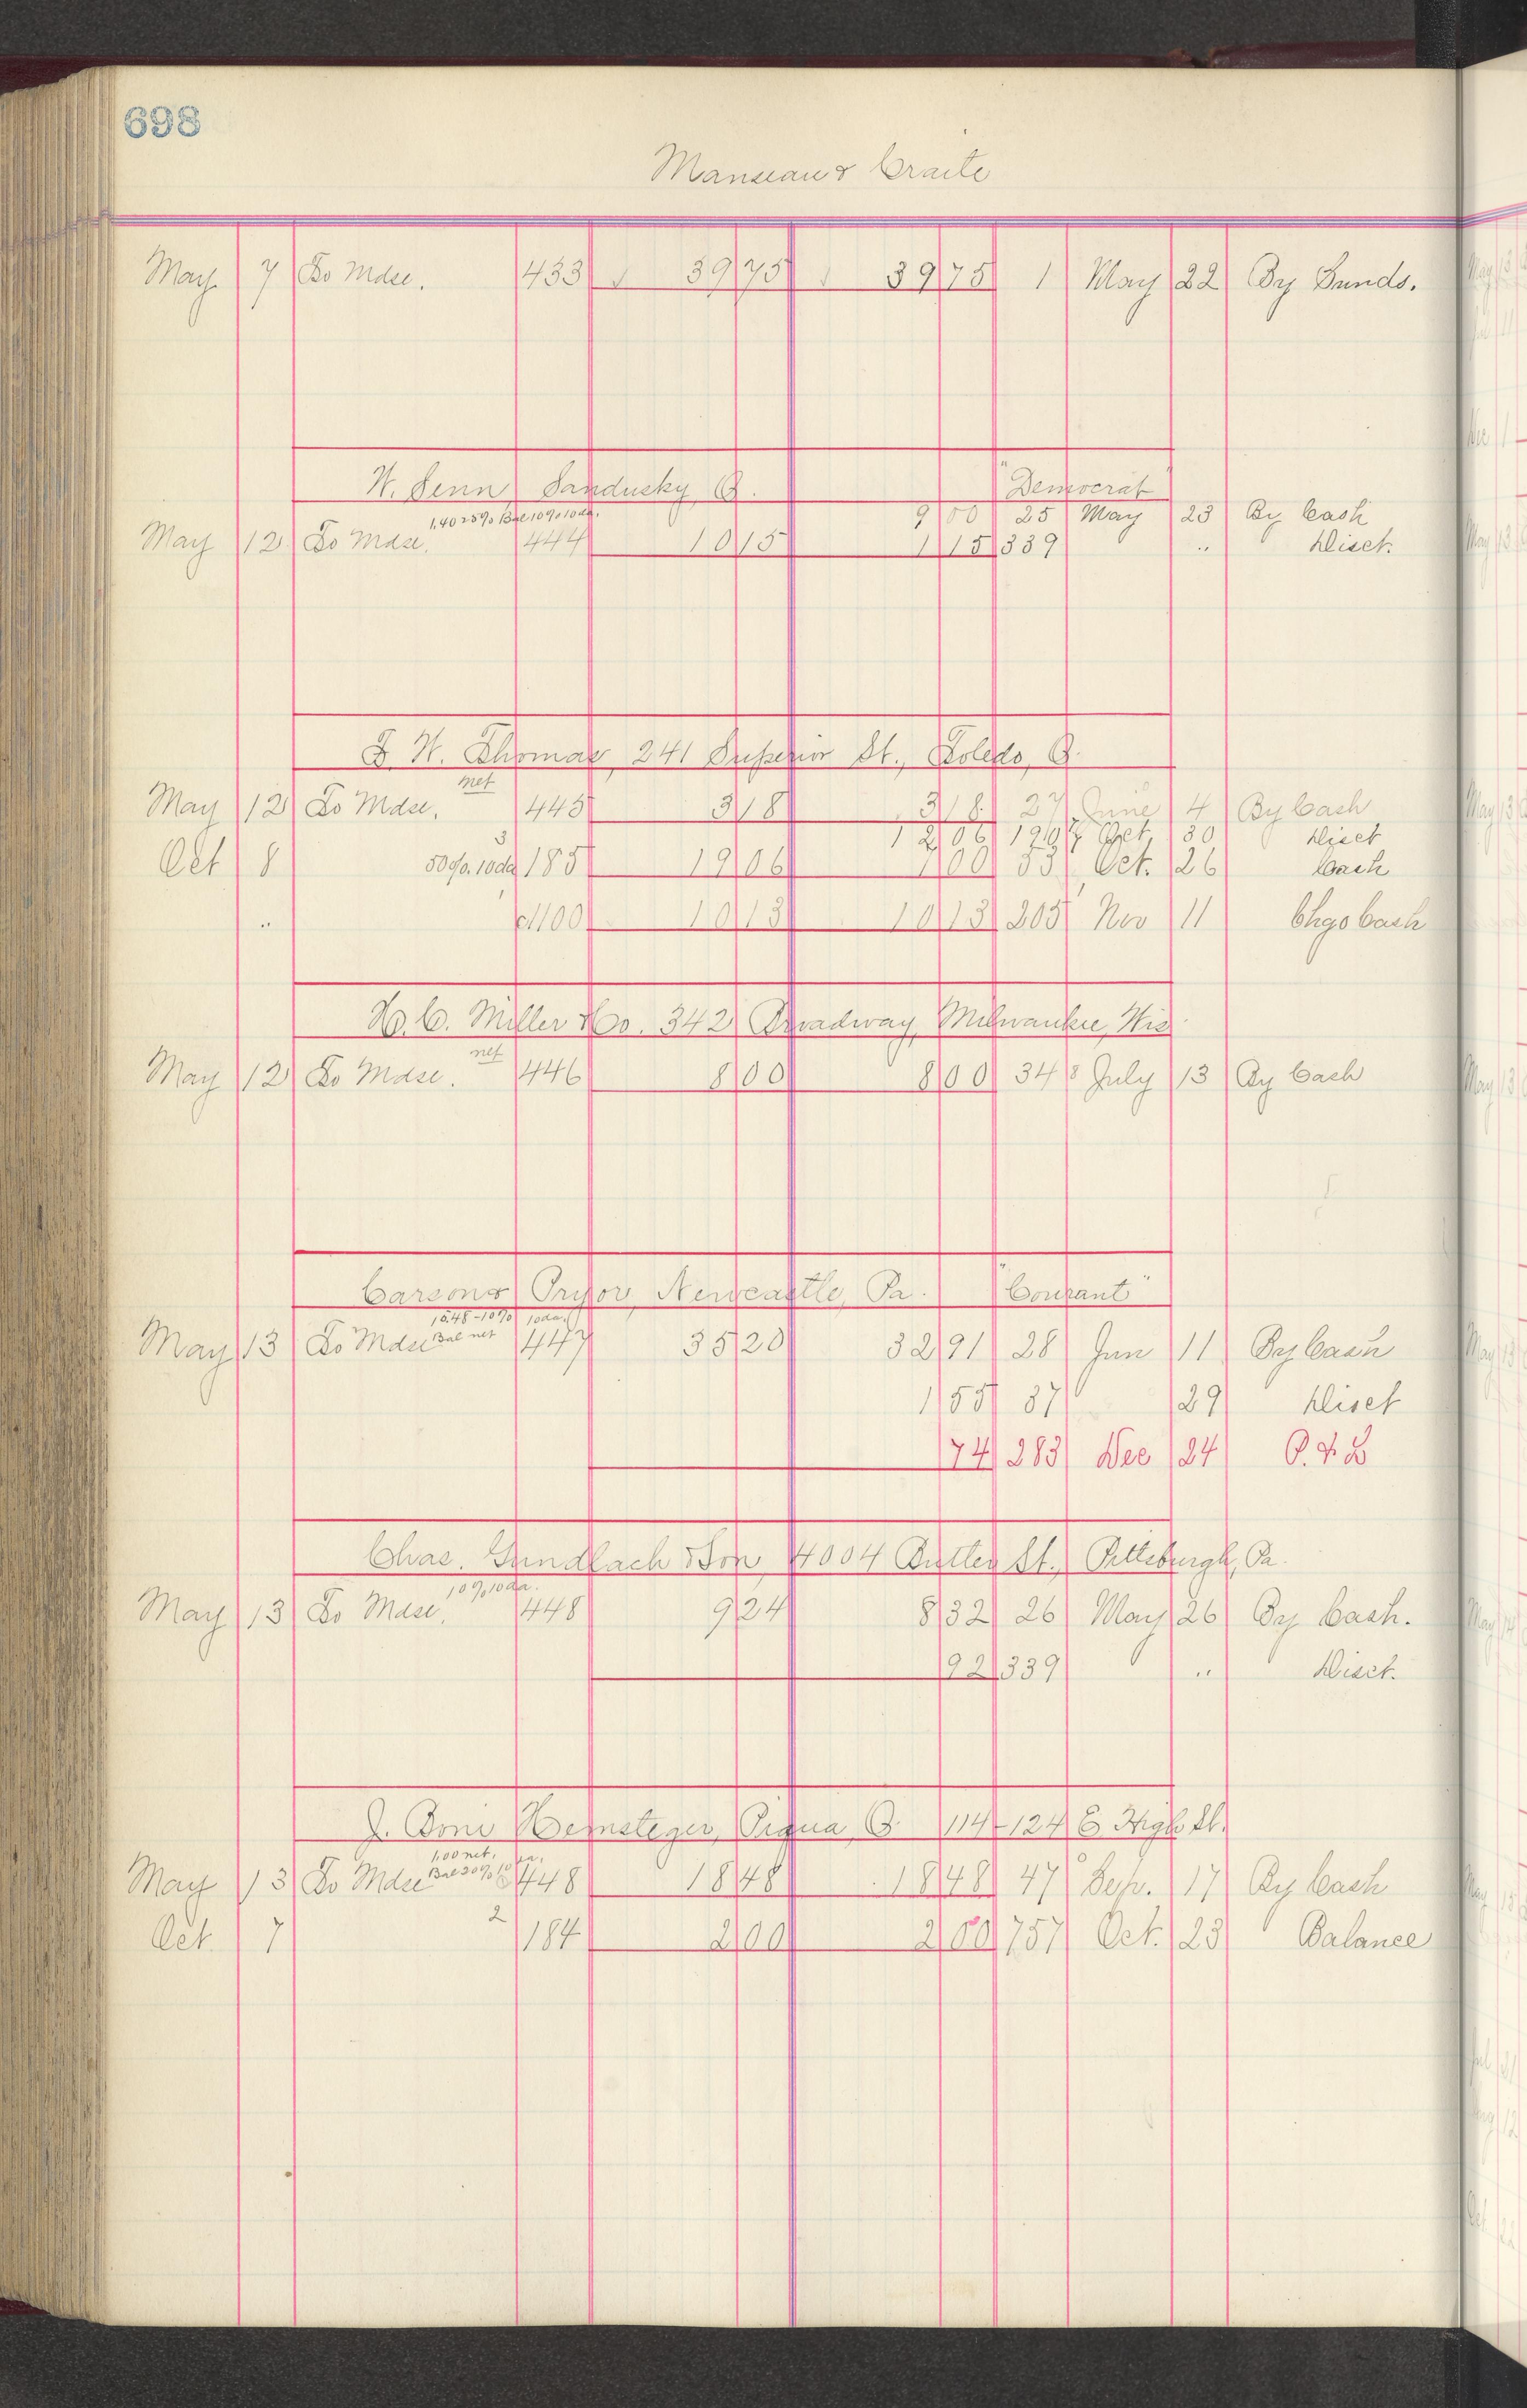 698
Manseau & Craite
May 7 To Mdse. 433 39 75 39 75 1 May 22 By Sunds.
W. Senn Sandusky, O. "Democrat"
1.40 25% Bal 10% 10 da. 9 00 25 May 23 By Cash
May 12 To Mdse. 444 10 15 1 15 339 " Disct.
F. W. Thomas, 241 Superior St., Toledo, O.
net
May 12 To Mdse. 445 3 18 3 18 27 June 4 By Cash
3 12 06 190 Oct 30 Disct
Oct 8 50%. 10 da 185 19 06 7 00 53 Oct. 26 Cash
" c1100 10 13 10 13 205 Nov 11 Chgo Cash
H. C. Miller & Co. 342 Broadway, Milwaukee, Wis
net
May 12 To Mdse. 446 8 00 8 00 34 July 13 By Cash
Carson & Pryor, Newcastle, Pa. "Courant"
15.48 - 10% 10 da.
May 13 To Mdse Bal net 447 35 20 32 91 28 Jun 11 By Cash
1 55 37 29 Disct
74 283 Dec 24 P. & L
Chas. Gundlach & Son, 4004 Butler St., Pittsburgh, Pa.
10% 10 da.
May 13 To Mdse. 448 9 24 8 32 26 May 26 By Cash.
92 339 " Disct.
J. Boni Hemsteger, Piqua, O. 114-124 E. High St.
1.00 net.
May 13 To Mdse Bal 30% 10 da. 448 18 48 18 48 47 Sep. 17 By Cash
Oct. 7 2 184 2 00 2 00 757 Oct. 23 Balance